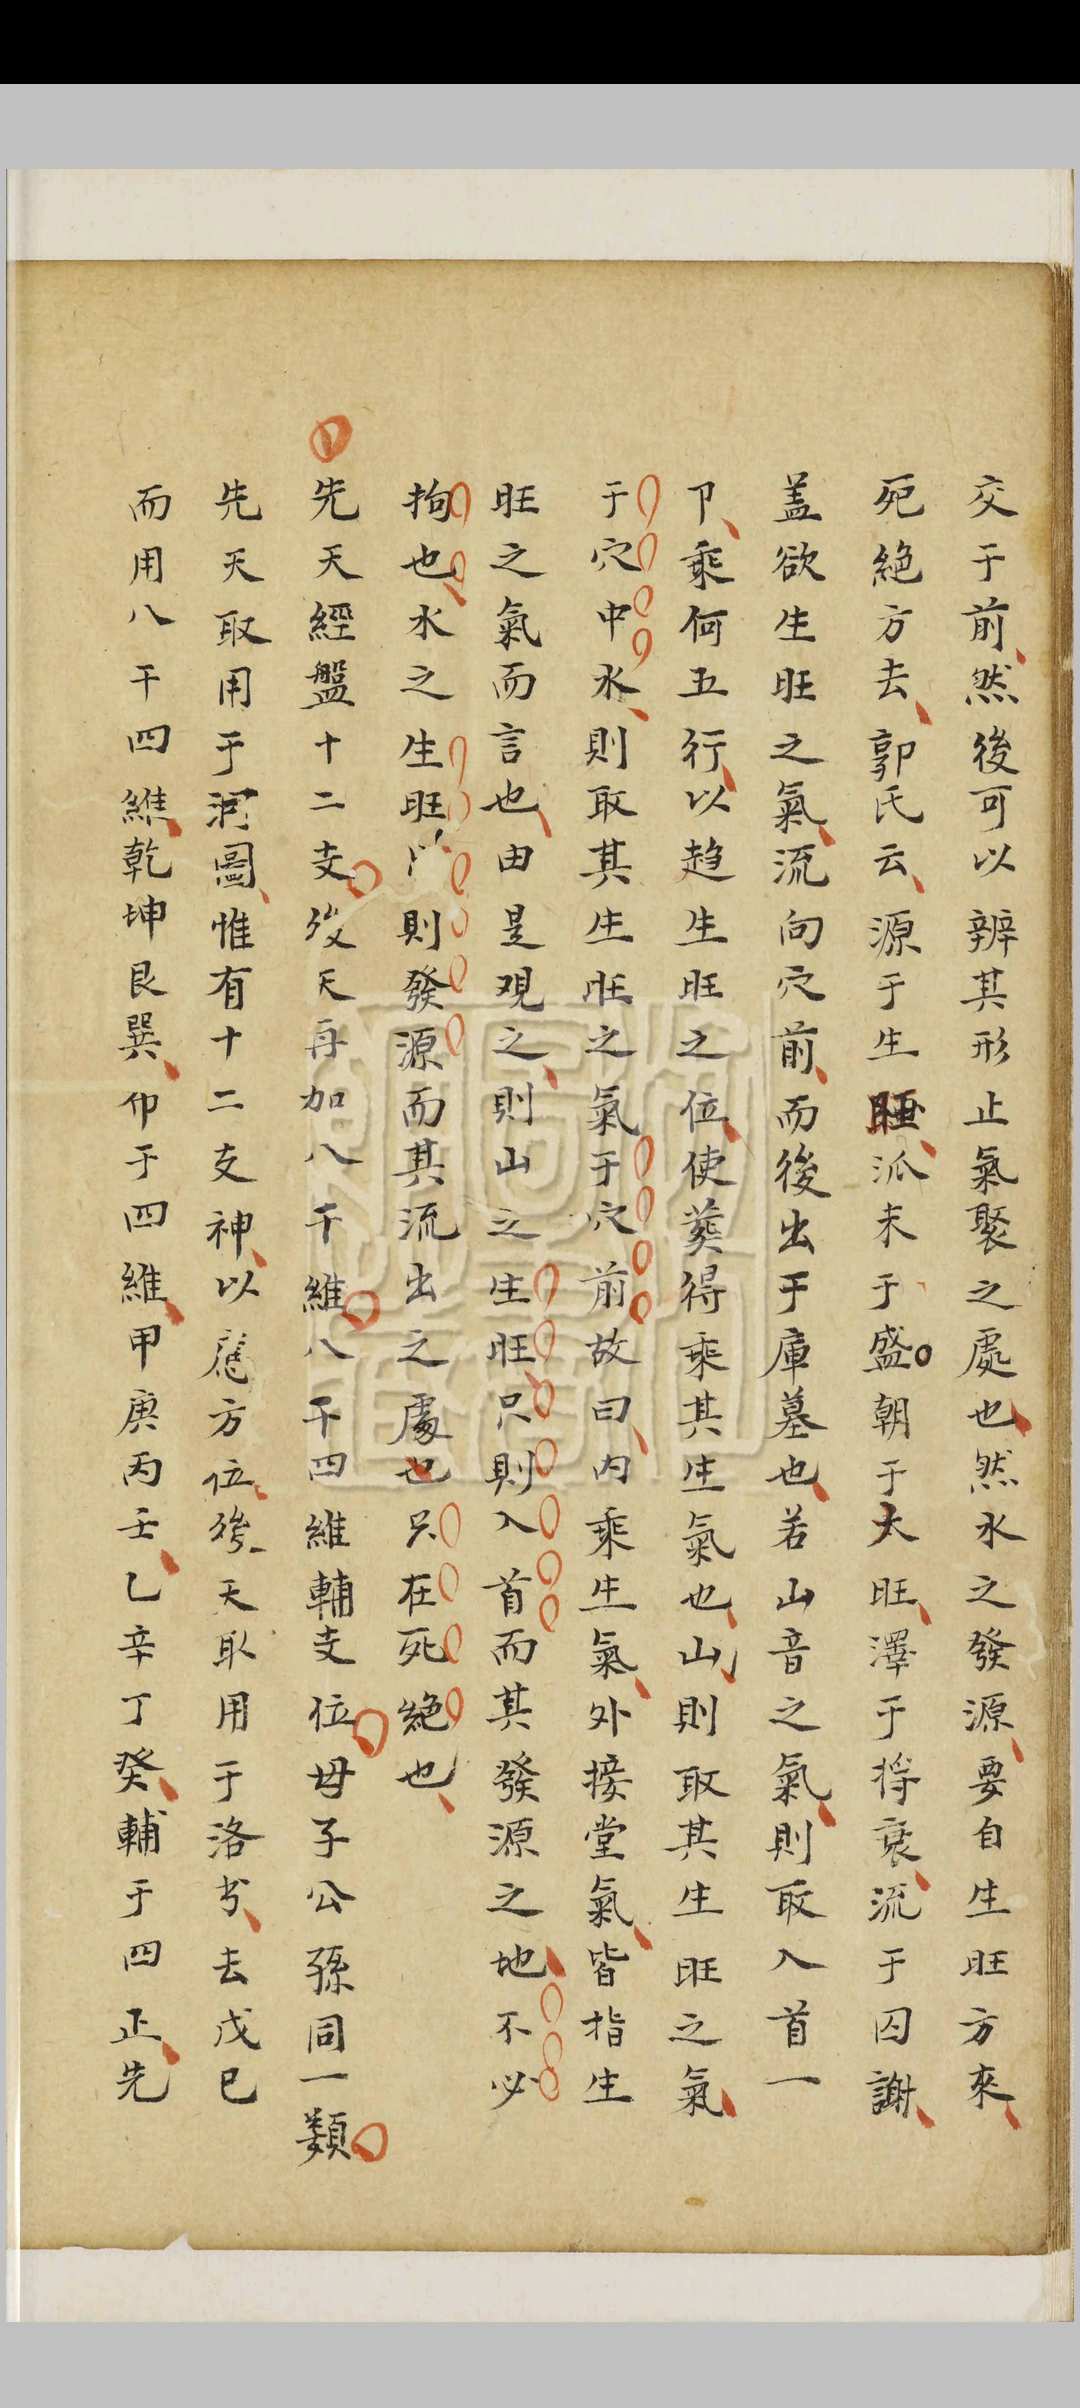 交于前然後可以辨其形止氣聚之處也然水之發源要自生旺方來
死絕方去郭氏云源于生旺派未于盛朝于大旺澤于將衰流于囚謝
盖欲生旺之氣流向穴前而後出于庫墓也若山音之氣則取入首一
卩乘何五行以趋生旺之位使葵得乘其生氣也山則取其生旺之氣
于穴中水則取其生旺之氣于穴前故曰内乘生氣外接堂氣皆指生
旺之氣而言也由是观之則山之生旺只則入首而其發源之地不必
拘也水之生旺則發源而其流出之處也只在死絕也
先天經盤十二支後天再加八干維八干四維輔支位母子公孫同一類
先天取用于圖惟有十二支神以方位後天取用于洛书去戊已
而用八干四維乾坤艮巽卯于四維甲庚丙壬乙辛丁癸輔于四正先